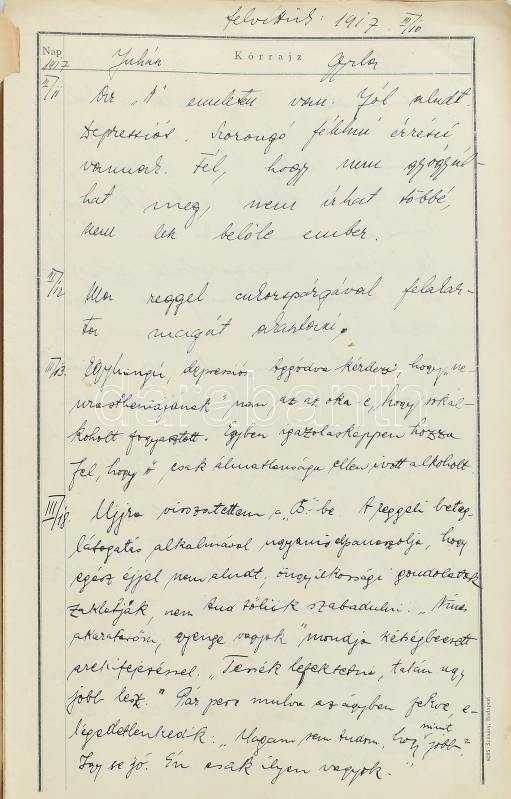 felvétetik: 1917 III/10
Nap Kórrajz
1917 Juhász Gyula
III/11 Az „A" emeleten van. Jól aludt.
Depressiós. Szorongó félelmi érzései
vannak. Fél, hogy nem gyógyul-
hat meg, nem írhat többé,
nem lesz belőle ember.
III/12 Ma reggel cukorspárgával felakar-
ta magát akasztani.
III/13. Egyhangú, depressiós aggódva kérdezi hogy „ne
urastheniájának" nem az az oka-e, hogy sok al-
koholt fogyasztott. Egyben igazolásképpen hozza
fel, hogy ő csak álmatlansága ellen ivott alkoholt.
III/18. Ujra visszatettem a „B"-be. A reggeli beteg-
látogatás alkalmával ugyanis elpanaszolja, hogy
egész éjjel nem aludt, öngyilkossági gondolatok
zaklatják, nem tud tőlük szabadulni. „Nincs
akaraterőm, gyenge vagyok" mondja kétségbeesett
arckifejezéssel. „Tessék lefektetni, talán úgy
jobb lesz." Pár perc mulva az ágyban fekve, e-
légedetlenkedik: „Magam sem tudom, hogy mint jobb?
Igy se jó. Én csak ilyen vagyok."
darabanth